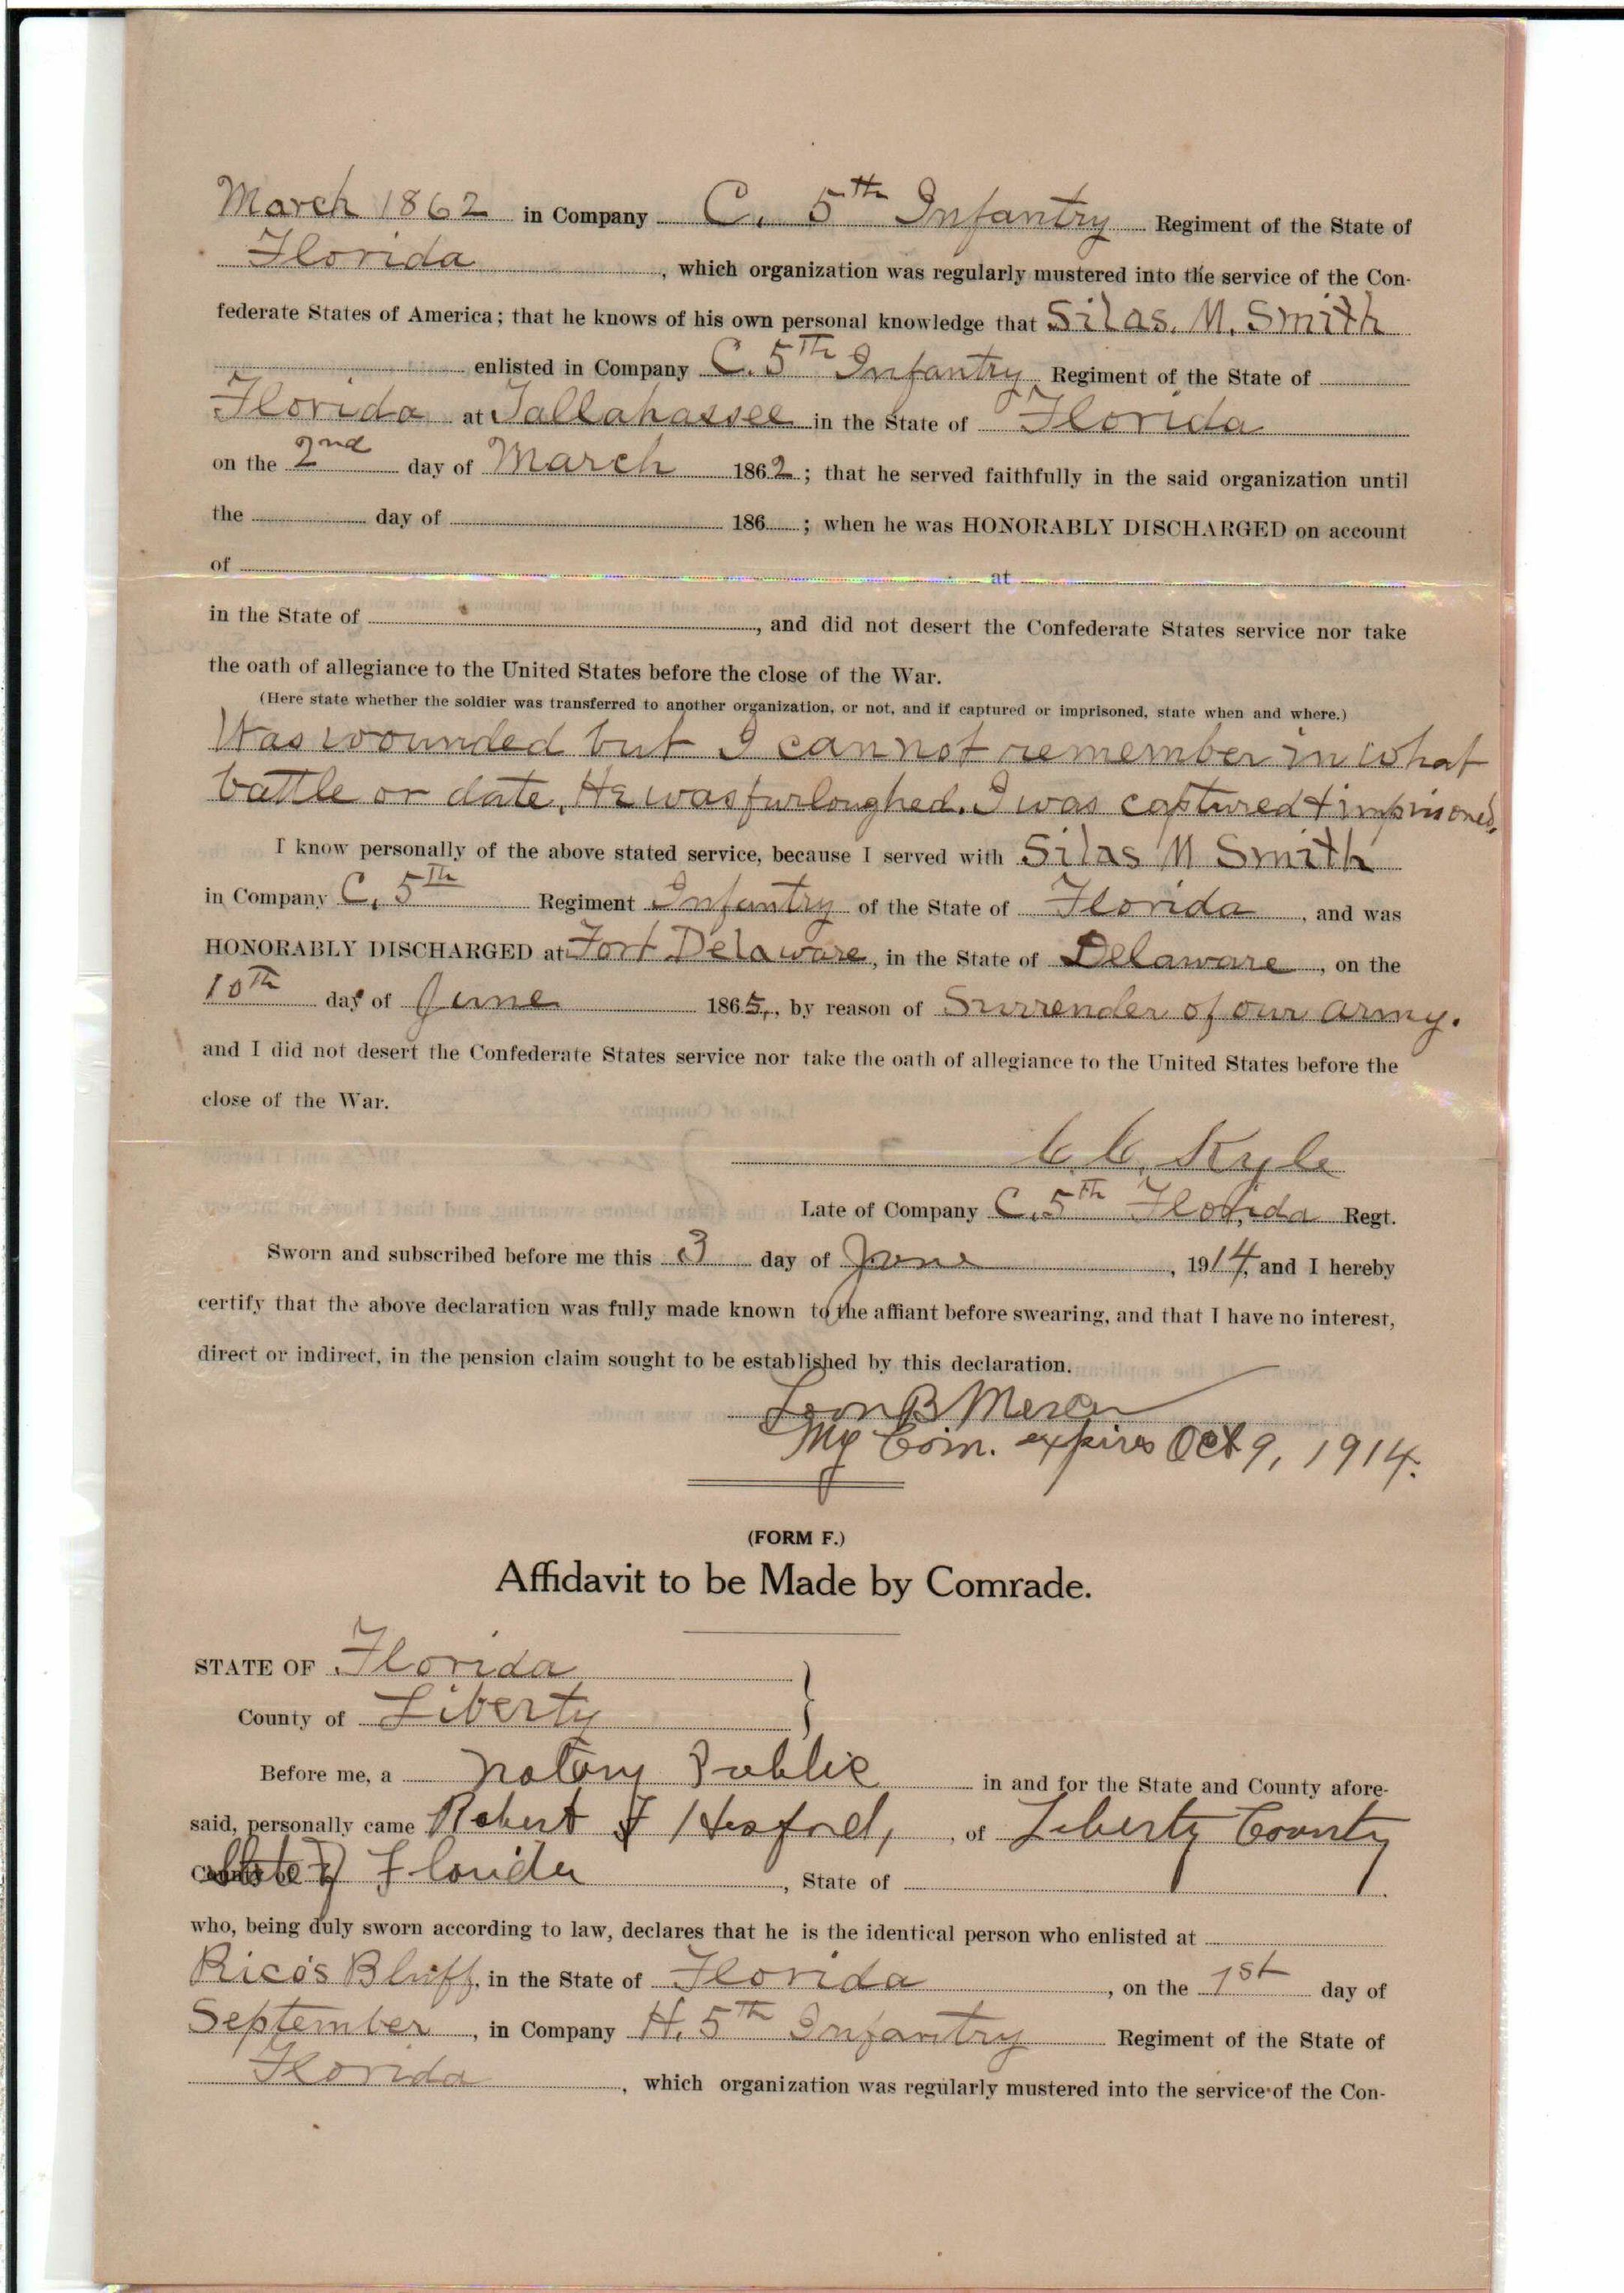 March 1862 in Company C. 5th Infantry Regiment of the State of
Florida, which organization was regularly mustered into the service of the Con-
federate States of America; that he knows of his own personal knowledge that Silas. M. Smith
enlisted in Company C. 5Th Infantry Regiment of the State of
Florida at Tallahassee in the State of Florida
on the 2nd day of March 1862; that he served faithfully in the said organization until
the day of 186 ; when he was HONORABLY DISCHARGED on account
of at
in the State of , and did not desert the Confederate States service nor take
the oath of allegiance to the United States before the close of the War.
(Here state whether the soldier was transferred to another organization, or not, and if captured or imprisoned, state when and where.)
Was wounded but I cannot remember in what
battle or date. He was furloughed. I was captured & imprisoned.
I know personally of the above stated service, because I served with Silas M Smith
in Company C, 5Th Regiment Infantry of the State of Florida, and was
HONORABLY DISCHARGED at Fort Delaware, in the State of Delaware, on the
10Th day of June 1865, by reason of Surrender of our army.
and I did not desert the Confederate States service nor take the oath of allegiance to the United States before the
close of the War.
C. C. Kyle
Late of Company C. 5Th Florida Regt.
Sworn and subscribed before me this 3 day of June, 1914, and I hereby
certify that the above declaration was fully made known to the affiant before swearing, and that I have no interest,
direct or indirect, in the pension claim sought to be established by this declaration.
Leon B
My Com. expires Oct 9, 1914.
(FORM F.)
Affidavit to be Made by Comrade.
STATE OF Florida
County of Liberty
Before me, a Notary Public in and for the State and County afore-
said, personally came Robert F Hosford, , of Liberty County
State of Florida, State of
who, being duly sworn according to law, declares that he is the identical person who enlisted at
Rico's Bluff, in the State of Florida, on the 1st day of
September, in Company H. 5Th Infantry Regiment of the State of
Florida, which organization was regularly mustered into the service of the Con-